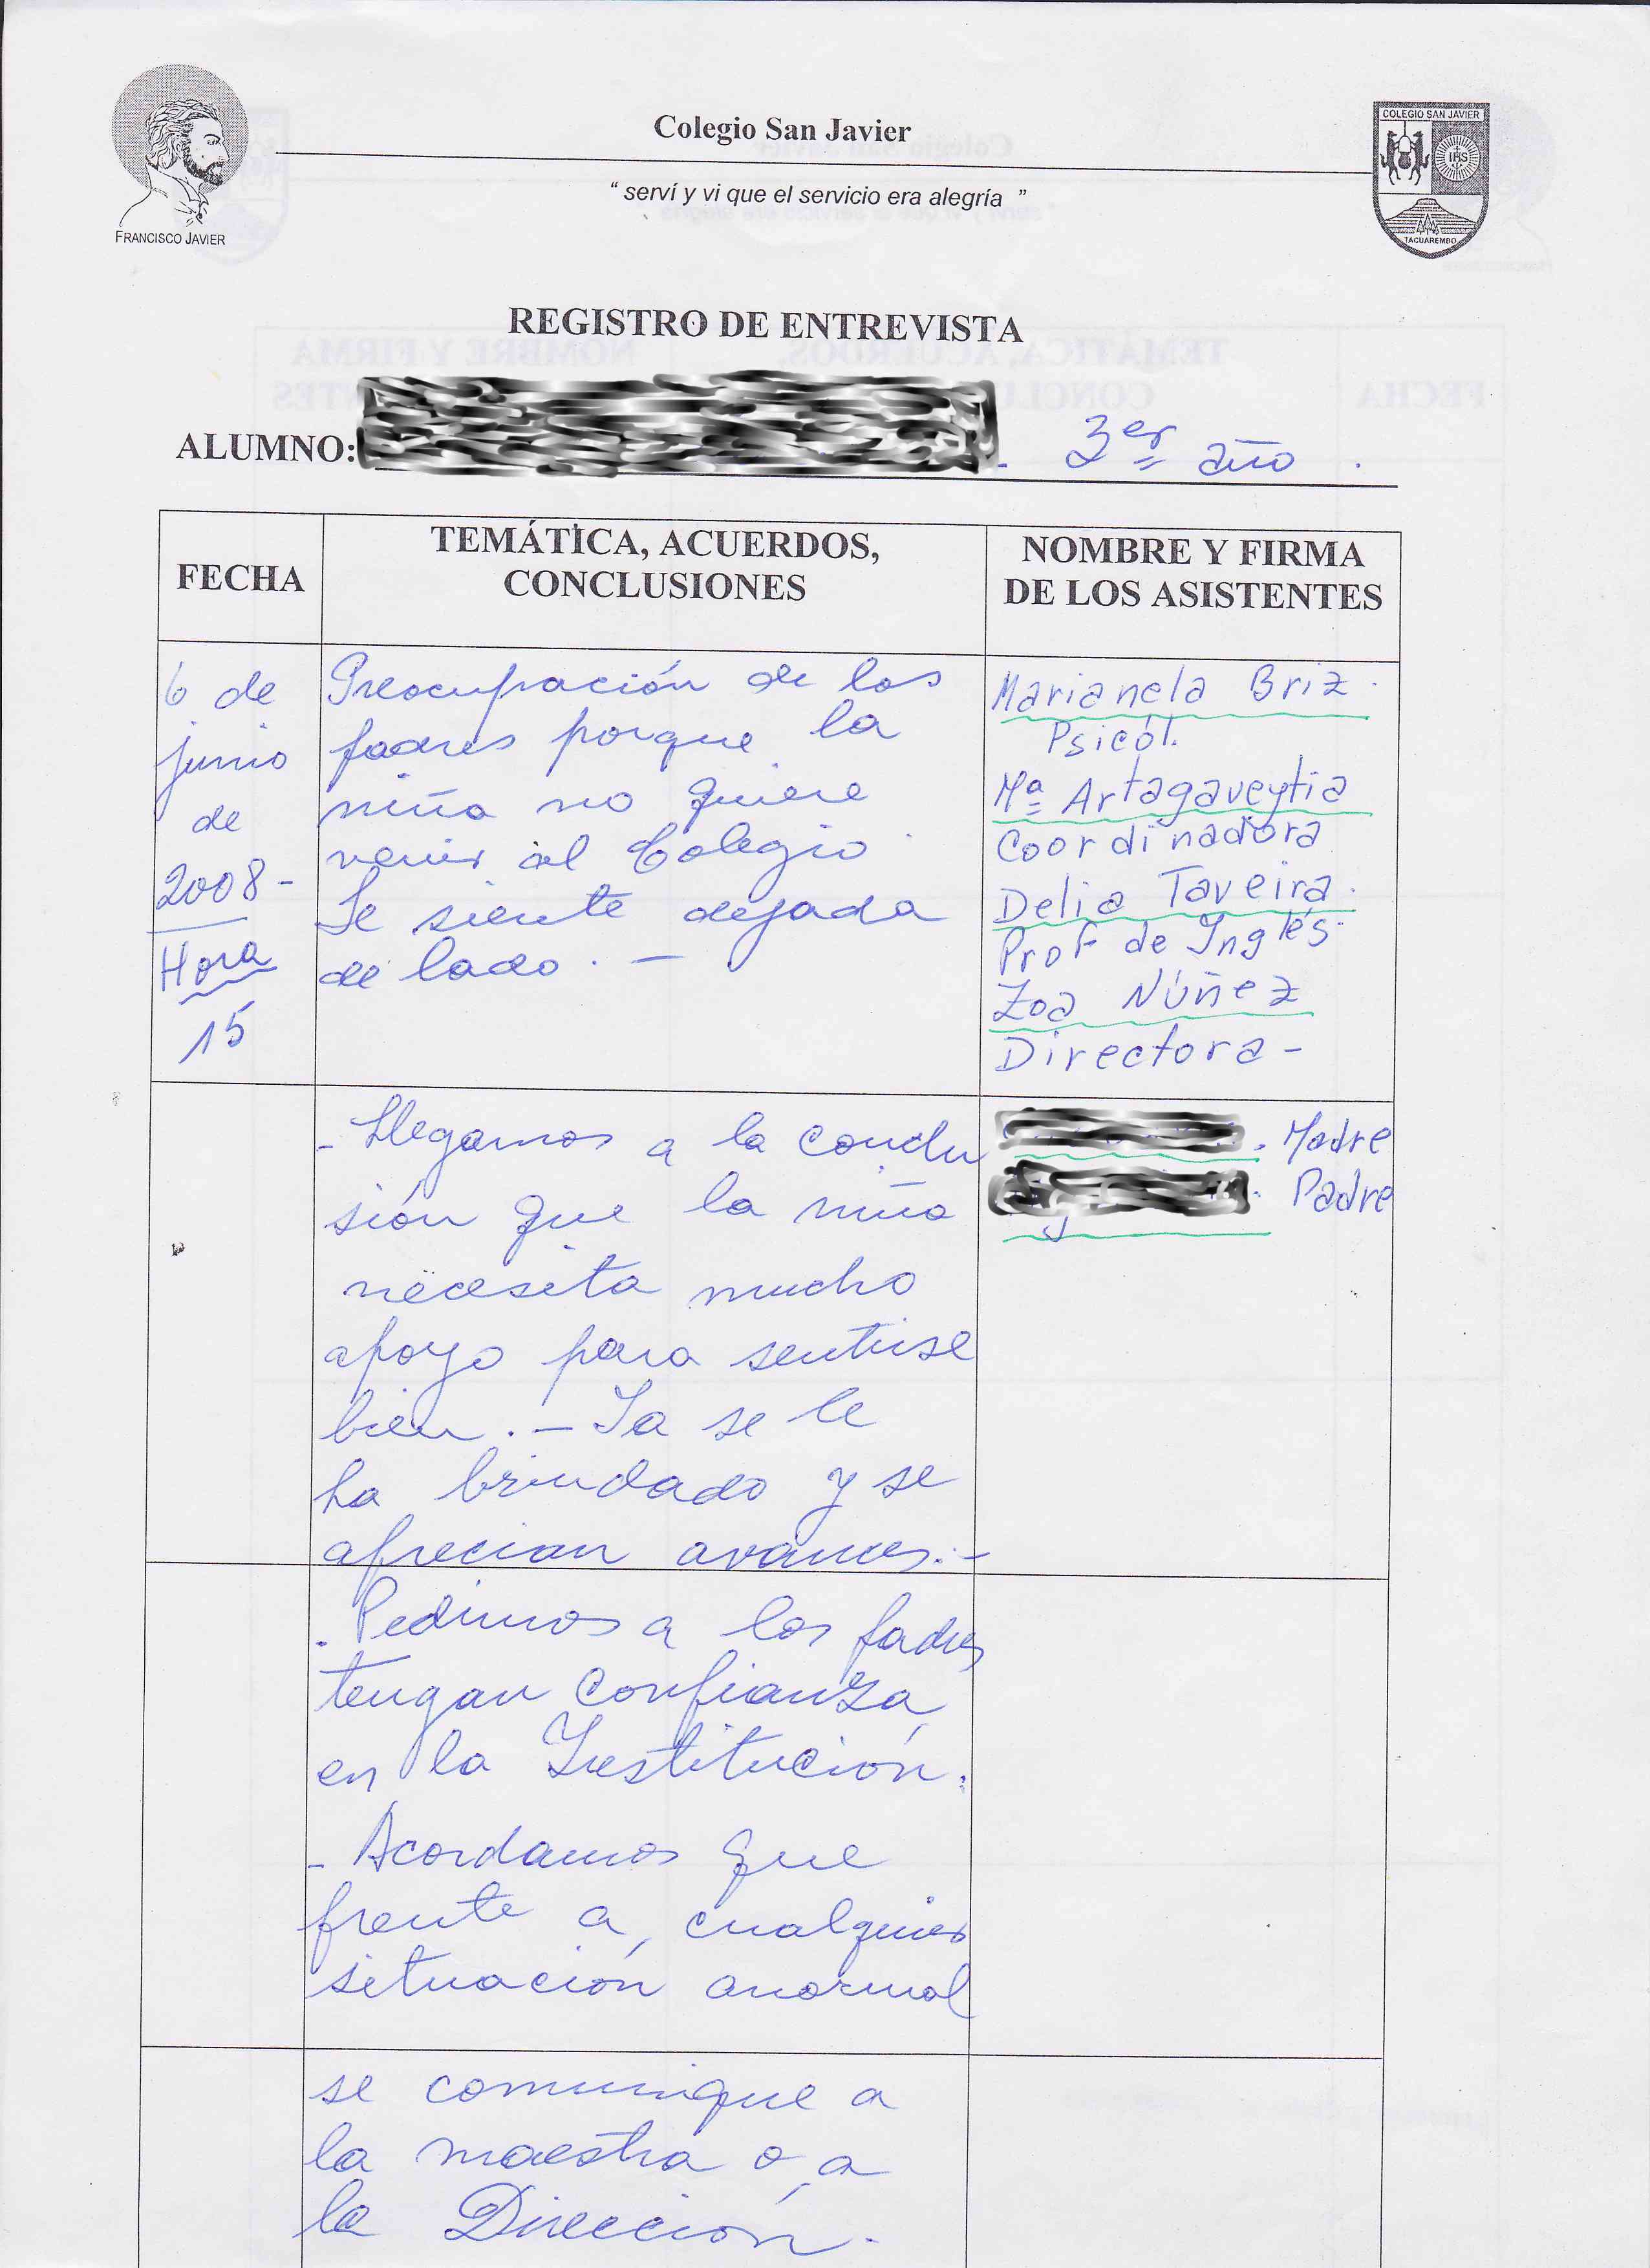 Colegio San Javier
" serví y vi que el servicio era alegría "
FRANCISCO JAVIER
COLEGIO SAN JAVIER
IHS
TACUAREMBO
REGISTRO DE ENTREVISTA
ALUMNO: 3er año .
FECHA
TEMÁTICA, ACUERDOS,
CONCLUSIONES
NOMBRE Y FIRMA
DE LOS ASISTENTES
6 de
junio
de
2008-
Hora
15
Preocupación de los
padres porque la
niña no quiere
venir al Colegio.
Se siente dejada
de lado. -
Marianela Briz.
Psicól.
Mª Artagaveytia
Coordinadora
Delia Taveira.
Prof de Inglés.
Zoa Núñez
Directora-
- Llegamos a la conclu
sión que la niña
necesita mucho
apoyo para sentirse
bien. - Ya se le
ha brindado y se
aprecian avances. -
. Madre
. Padre
- Pedimos a los padres
tengan confianza
en la Institución.
- Acordamos que
frente a cualquier
situación anormal
se comunique a
la maestra o a
la Dirección.